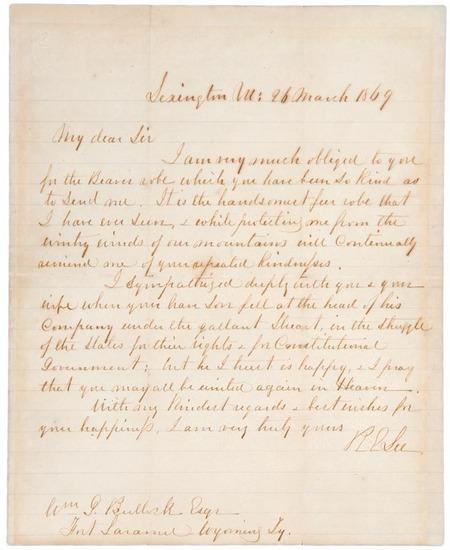 Lexington Va: 26 March 1869
My dear Sir
I am very much obliged to you
for the Beaver robe which you have been so kind as
to send me. It is the handsomest fur robe that
I have ever seen, & while protecting me from the
wintry winds of our mountains will continually
remind me of your repeated kindness.
I sympathized deeply with you & your
wife when your brave Son fell at the head of his
Company under the gallant Stuart, in the struggle
of the States for their rights & for Constitutional
Government; but he I trust is happy, & I pray
that you may all be united again in Heaven.
With my kindest regards & best wishes for
your happiness, I am very truly yours
R E Lee
Wm G. Bullock Esqr
Fort Laramie Wyoming Ty.